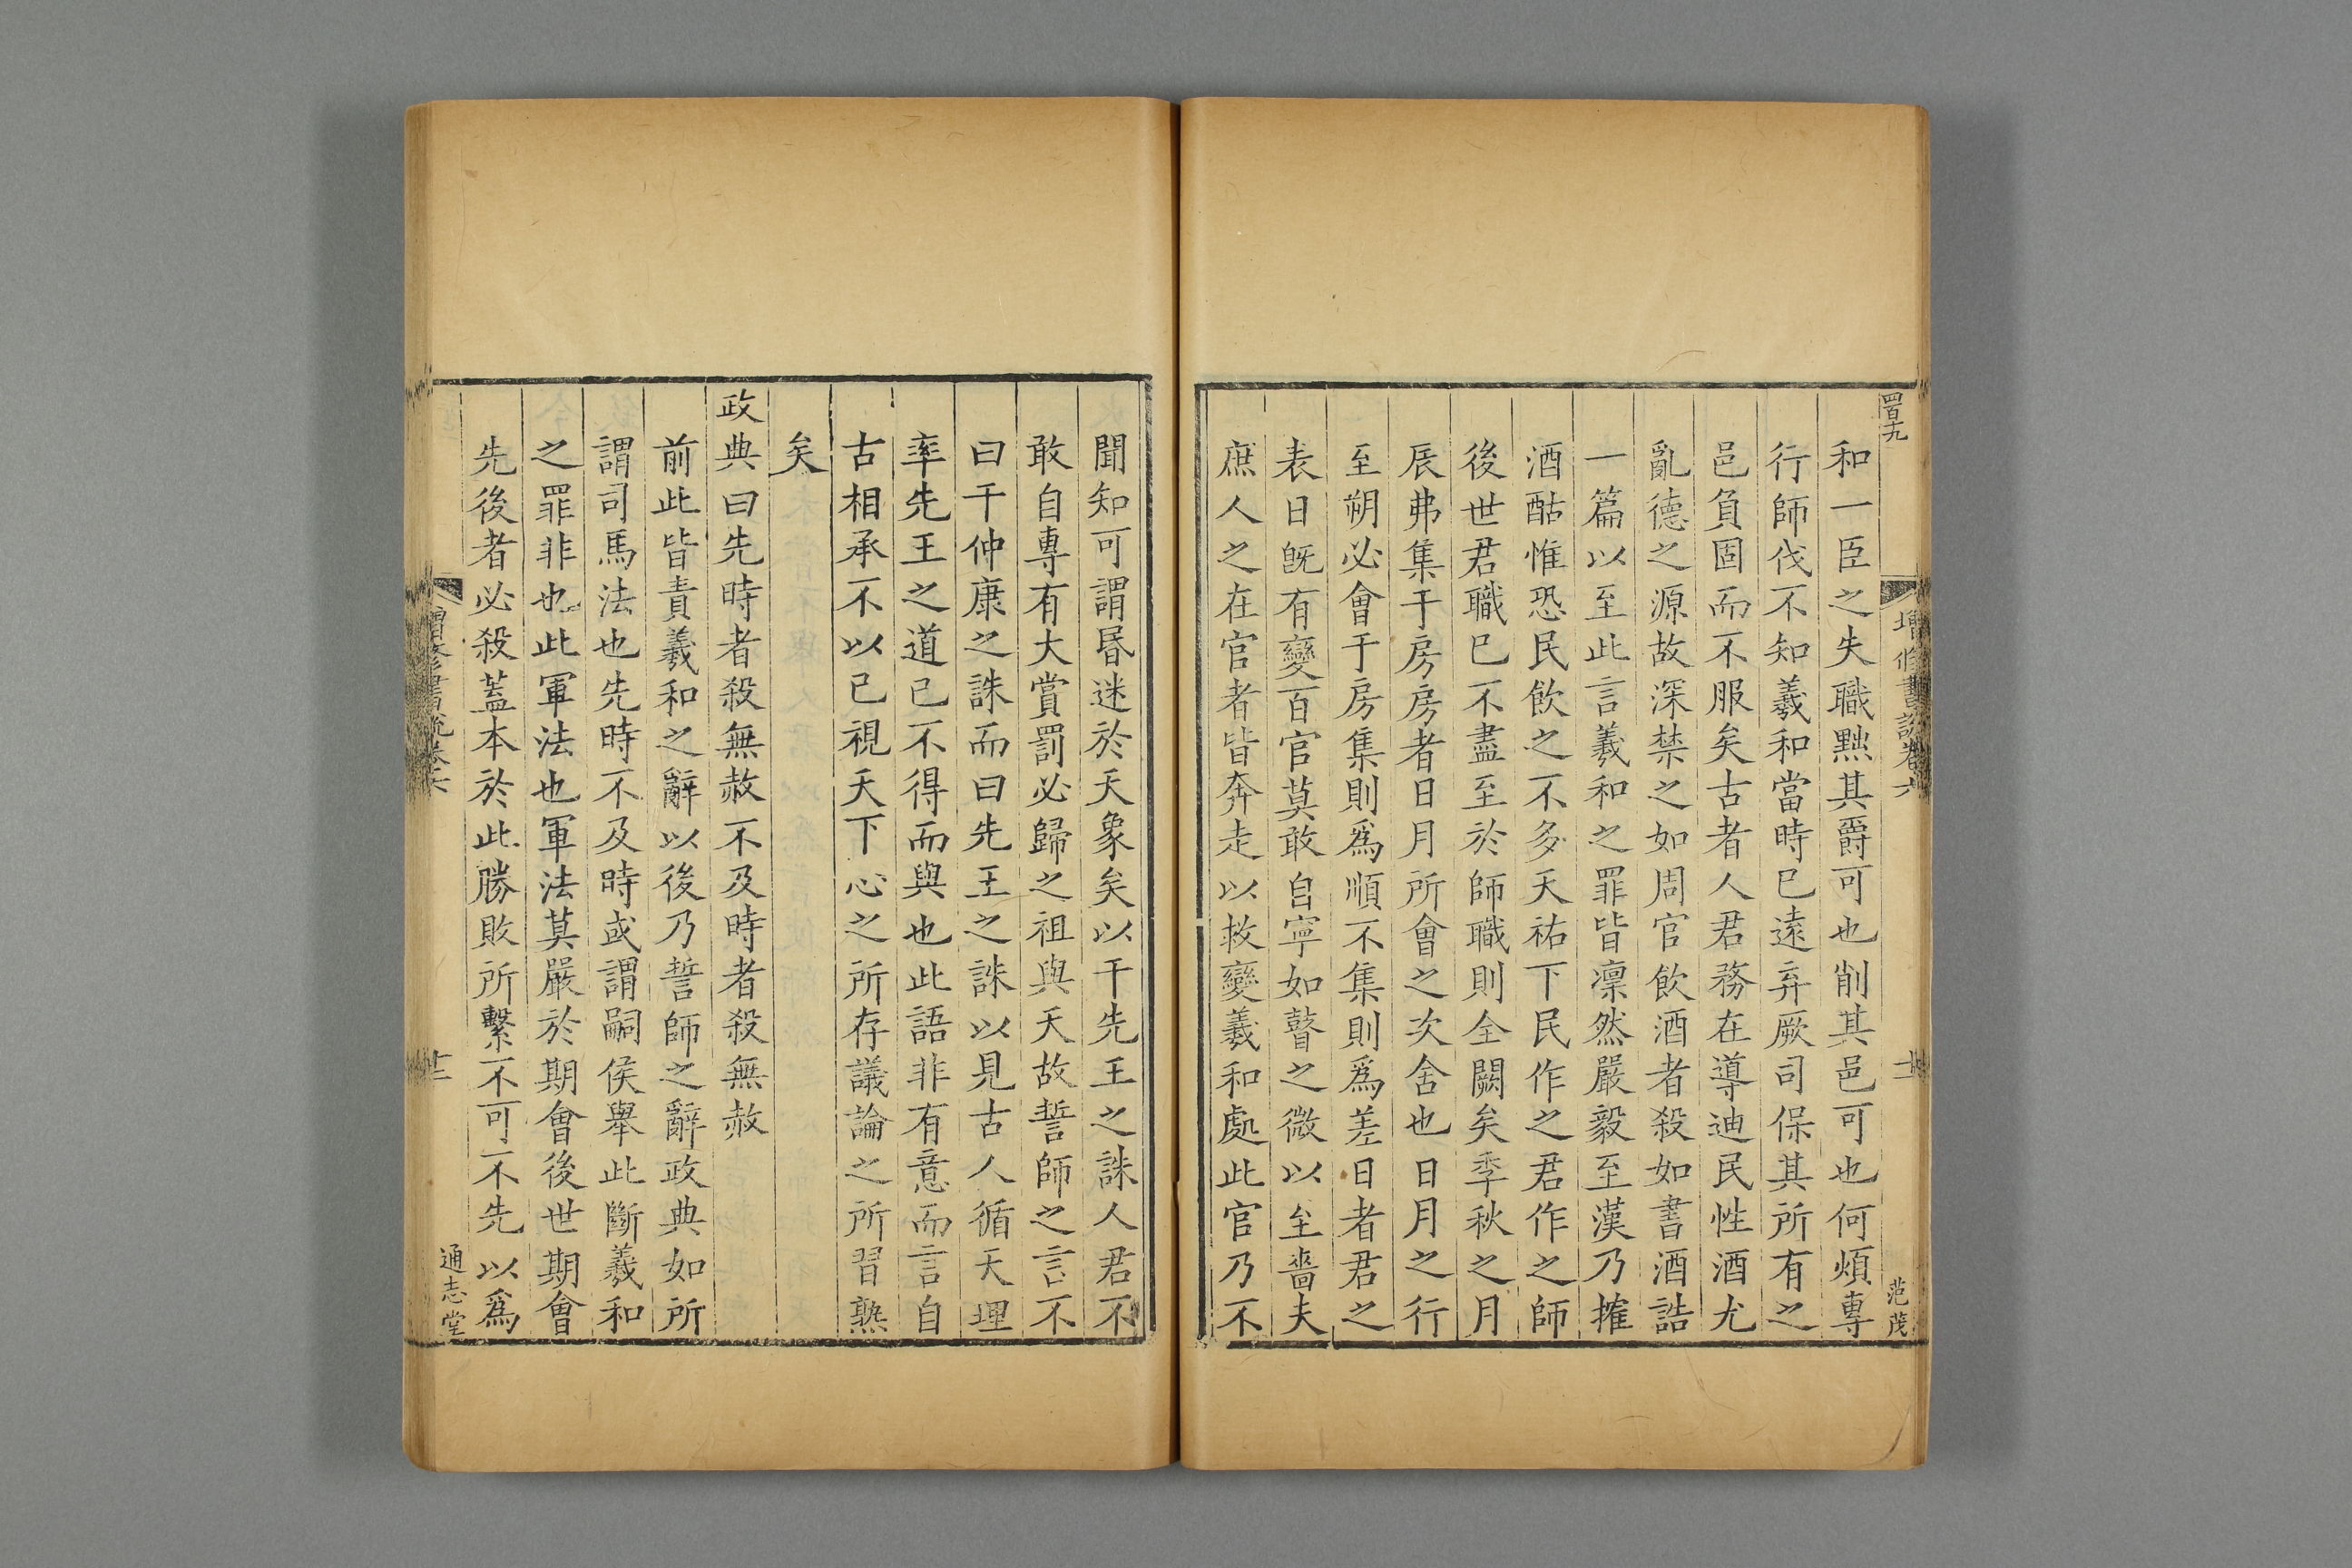 四百十九
增修書說卷六
十二
范茂
和一臣之失職黜其爵可也削其邑可也何煩專
行師伐不知羲和當時已遠弃厥司保其所有之
邑負固而不服矣古者人君務在導迪民性酒尤
亂德之源故深禁之如周官飲酒者殺如書酒誥
一篇以至此言羲和之罪皆凛然嚴毅至漢乃搉
酒酤惟恐民飲之不多天祐下民作之君作之師
後世君職已不盡至於師職則全闕矣季秋之月
辰弗集于房房者日月所會之次舍也日月之行
至朔必會于房集則爲順不集則爲差日者君之
表日旣有變百官莫敢自寧如瞽之微以至嗇夫
庶人之在官者皆奔走以救變羲和處此官乃不
聞知可謂昬迷於天象矣以干先王之誅人君不
敢自專有大賞罰必歸之祖與天故誓師之言不
曰干仲康之誅而曰先王之誅以見古人循天理
率先王之道已不得而與也此語非有意而言自
古相承不以已視天下心之所存議論之所習熟
矣
政典曰先時者殺無赦不及時者殺無赦
前此皆責羲和之辭以後乃誓師之辭政典如所
謂司馬法也先時不及時或謂嗣侯舉此斷羲和
之罪非也此軍法也軍法莫嚴於期會後世期會
先後者必殺蓋本於此勝敗所繫不可不先以爲
增修書說卷六
十二
通志堂